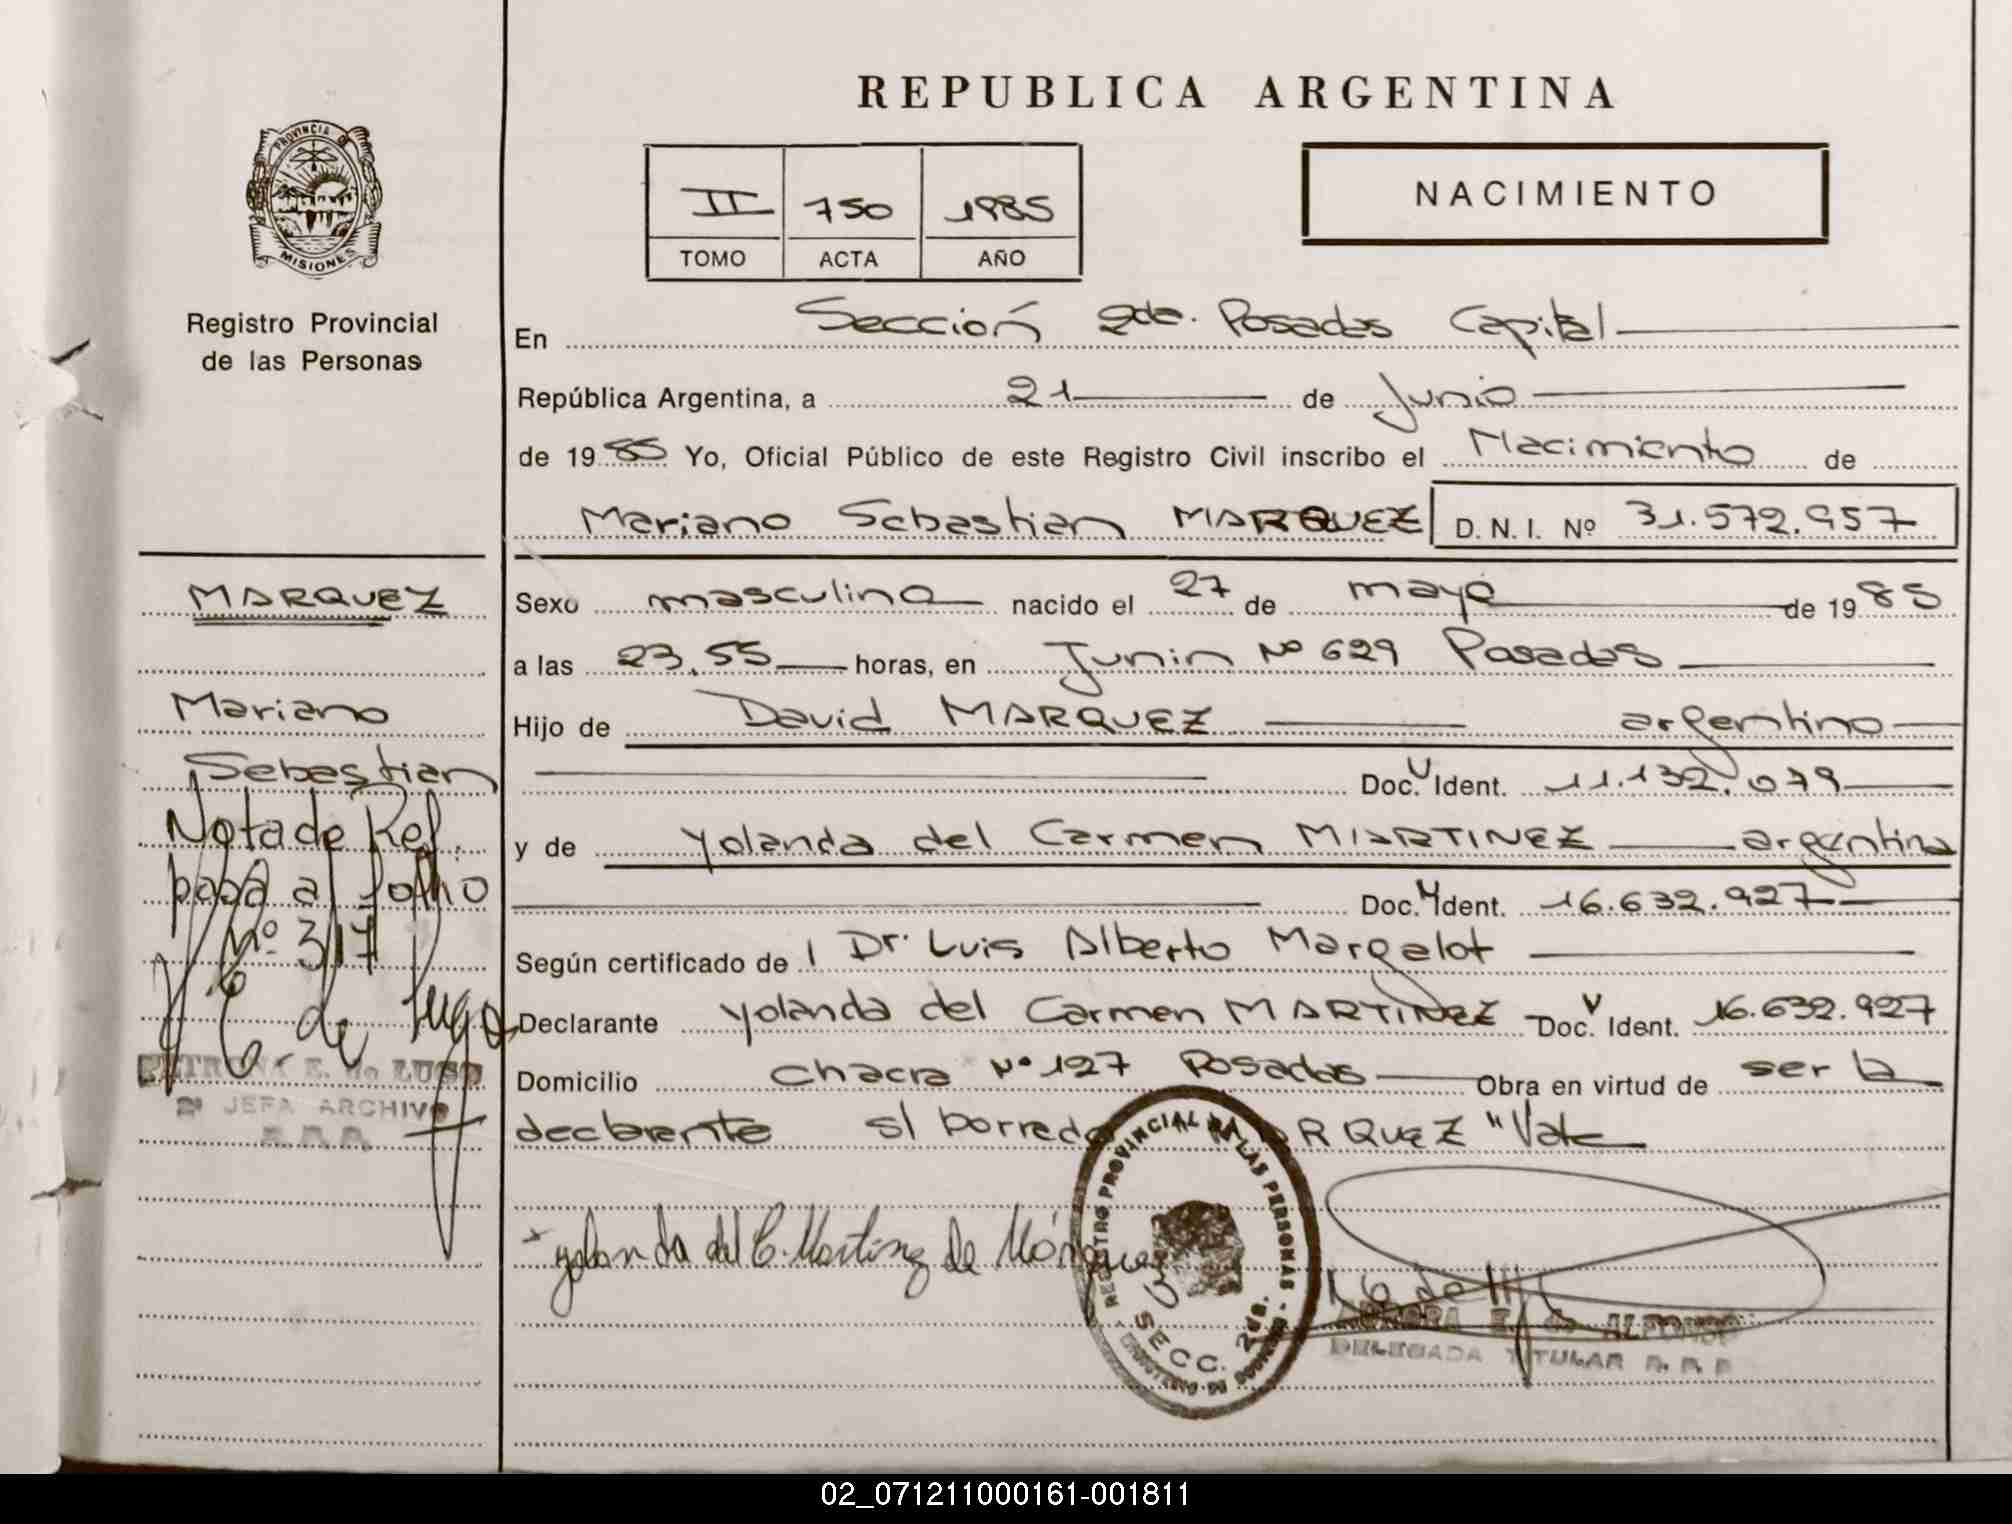 REPUBLICA ARGENTINA
PROVINCIA DE
MISIONES
Registro Provincial
de las Personas
II 750 1985
TOMO ACTA AÑO
NACIMIENTO
En Sección 2da. Posadas Capital
República Argentina, a 21 de Junio
de 1985 Yo, Oficial Público de este Registro Civil inscribo el Nacimiento de
Mariano Sebastian MARQUEZ D. N. I. Nº 31.572.957
Sexo masculino nacido el 27 de mayo de 1985
a las 23.55 horas, en Junin Nº 629 Posadas
Hijo de David MARQUEZ argentino
Doc. Ident. 11.132.079
y de Yolanda del Carmen MARTINEZ argentina
Doc. Ident. 16.632.927
Según certificado de Dr. Luis Alberto Margalot
Declarante Yolanda del Carmen MARTINEZ Doc. Ident. 16.632.927
Domicilio Chacra Nº 127 Posadas Obra en virtud de ser la
declarante s/ borrado RQUEZ "Vale
Yolanda del C. Martinez de Márquez
REGISTRO PROVINCIAL DE LAS PERSONAS
SECC. 2da.
E. de ALFONSO
DELEGADA TITULAR R. P. P.
MARQUEZ
Mariano
Sebastian
Nota de Ref.
pasa al folio
nº 317
E. de Lugo
E. de LUGO
2ª JEFA ARCHIVO
02_071211000161-001811